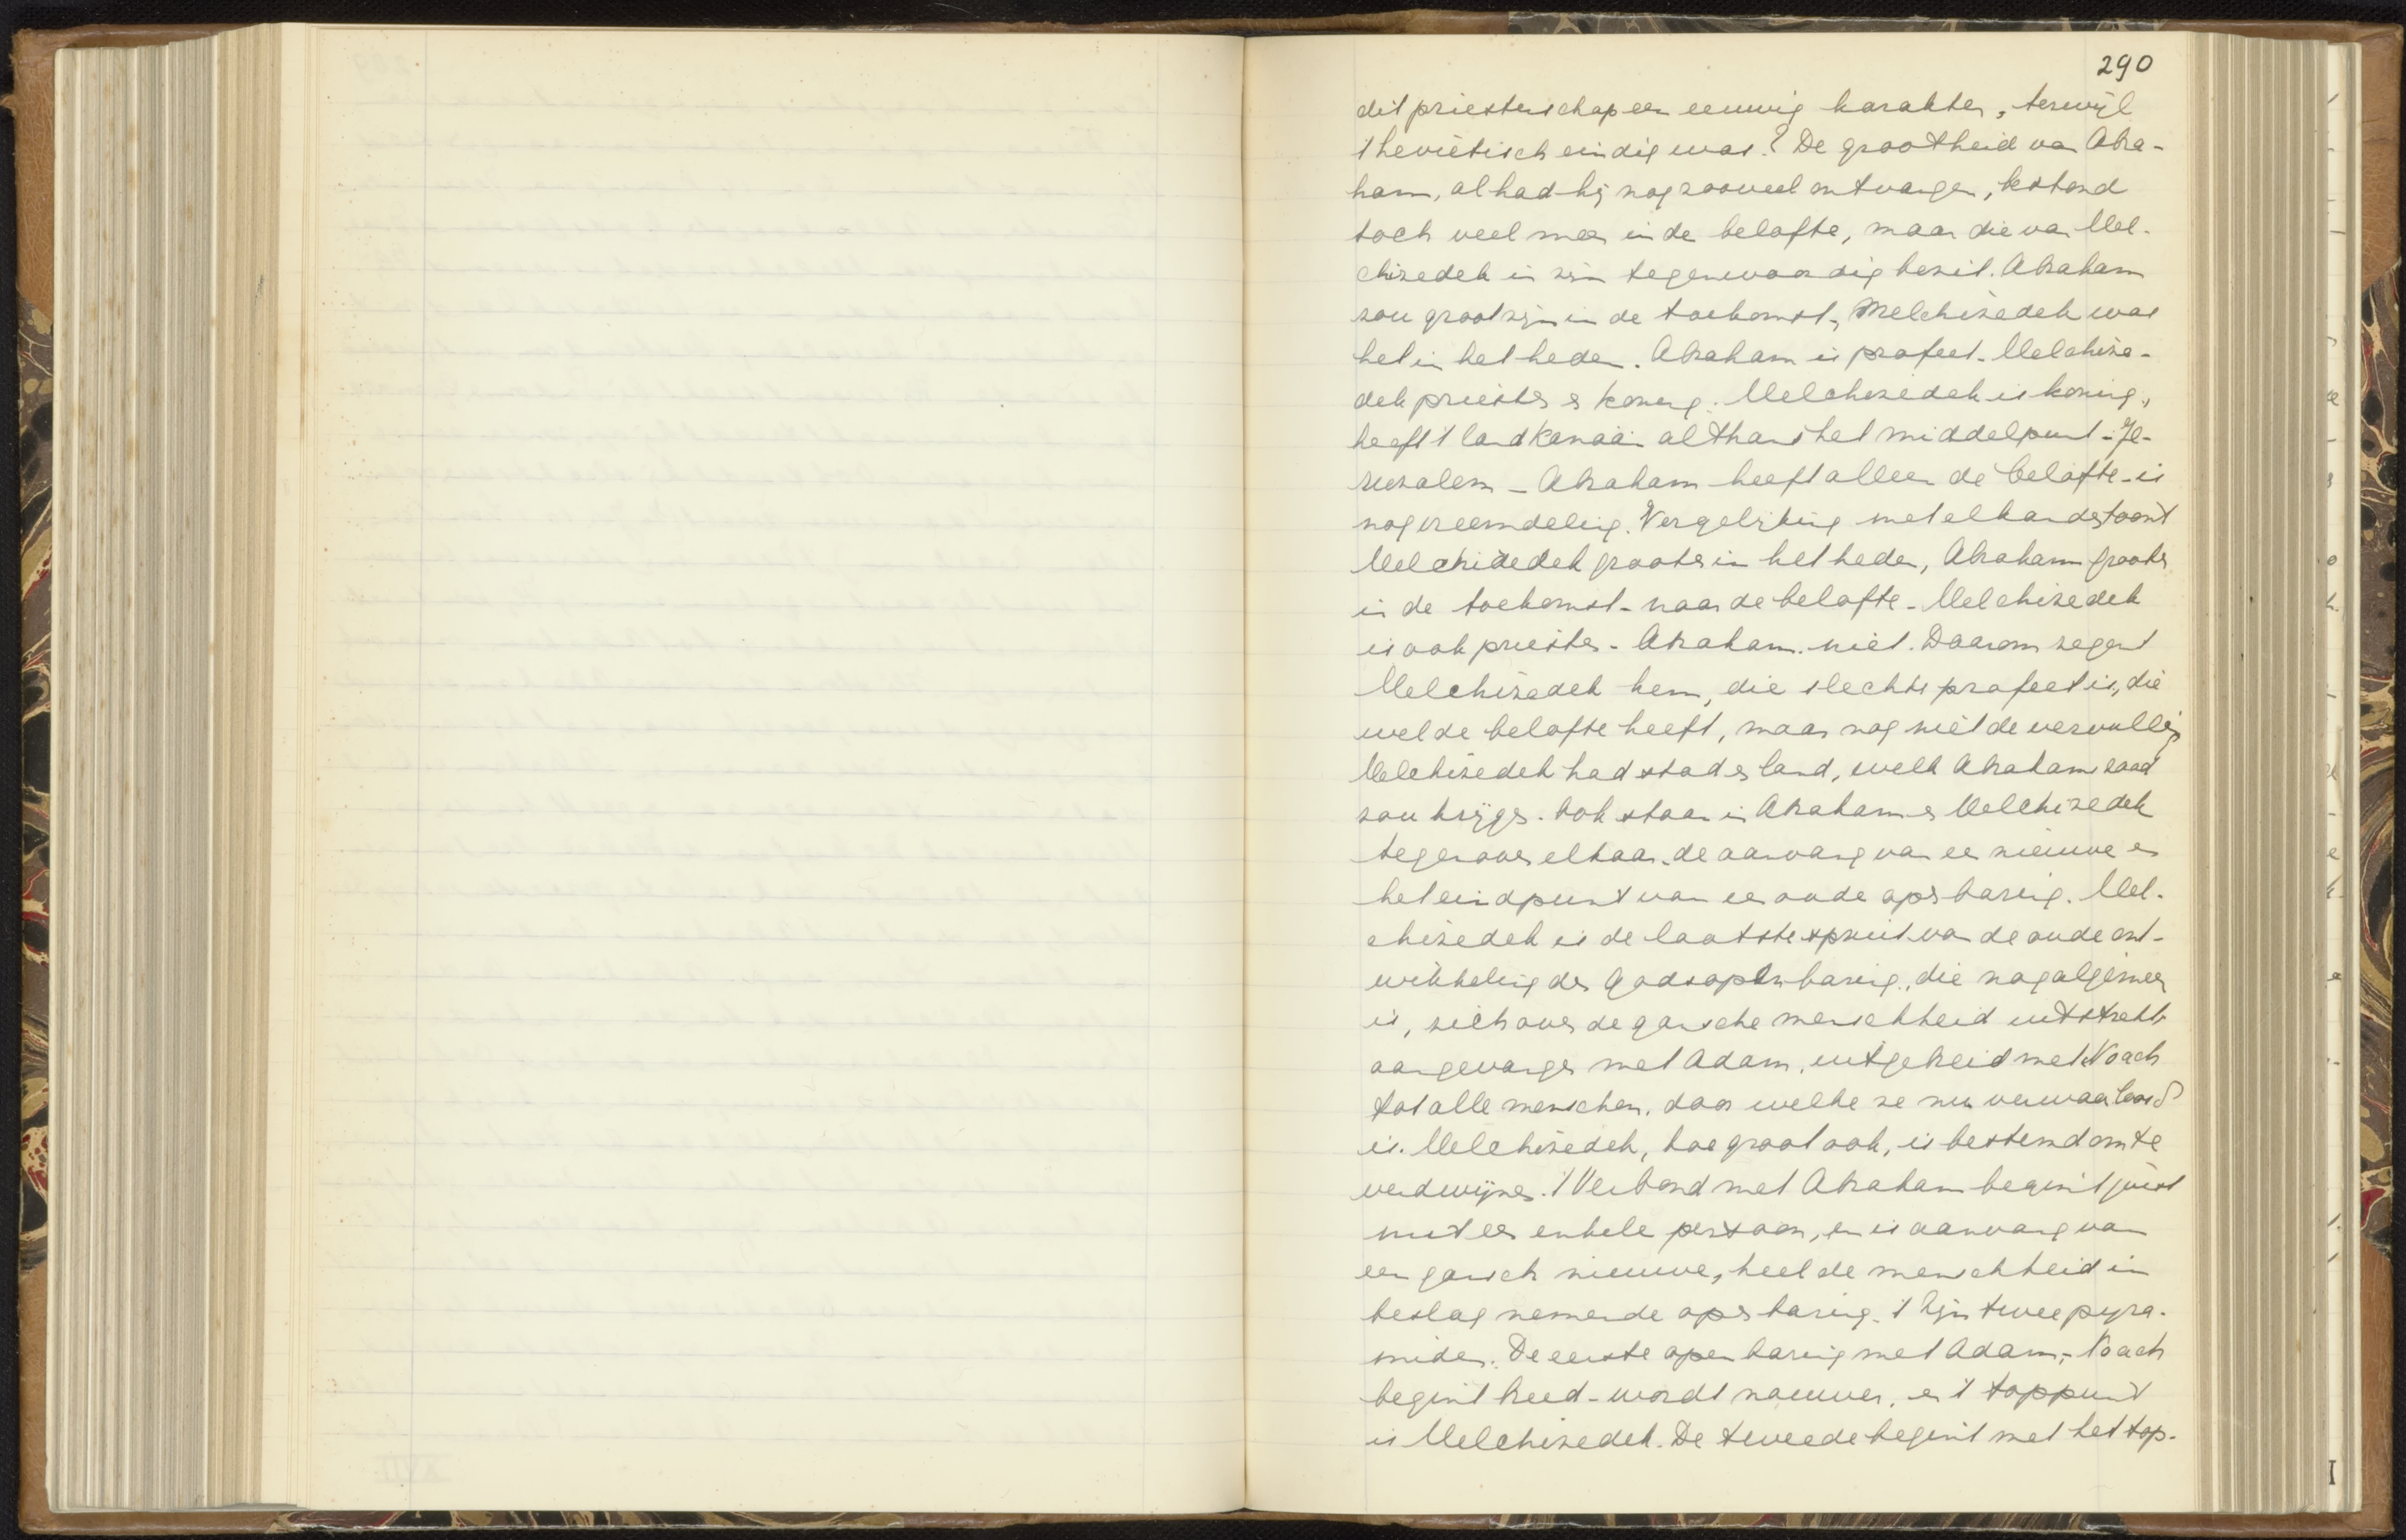 290
dit priesterschap een eeuwig karakter, terwijl
't Levietisch eindig was? De grootheid van Abra-
ham, al had hij nog zooveel ontvangen, bestond
toch veel meer in de belofte, maar die van Mel-
chizedek in zijn tegenwoordig bezit. Abraham
zou groot zijn in de toekomst, Melchizedek was
het in het heden. Abraham is profeet - Melchize-
dek priester en koning. Melchizedek is koning,
heeft 't land Kanaän althans het middelpunt - Je-
ruzalem - Abraham heeft alleen de belofte - is
nog vreemdeling. Vergelijking met elkander toont
Melchizedek grooter in het heden, Abraham grooter
in de toekomst - naar de belofte - Melchizedek
is ook priester - Abraham niet. Daarom zegent
Melchizedek hem, die slechts profeet is, die
wel de belofte heeft, maar nog niet de vervulling
Melchizedek had stad en land, welk Abrahams zaad
zou krijgen. Ook staan in Abraham en Melchizedek
tegenover elkaar de aanvang van een nieuwe en
het eindpunt van een oude openbaring. Mel-
chizedek is de laatste spruit van de oude ont-
wikkeling der Godsopenbaring, die nog algemeen
is, zich over de gansche menschheid uitstrekt,
aangevangen met Adam, uitgebreid met Noach
tot alle menschen, door welke ze nu verwaarloosd
is. Melchizedek, hoe groot ook, is bestemd om te
verdwijnen. 't Verbond met Abraham begint juist
met een enkele persoon, en is aanvang van
een gansch nieuwe, heel de menschheid in
beslag nemende openbaring. 't Zijn twee pyra-
miden. De eerste openbaring met Adam, - Noach
begint breed - wordt nauwer, en 't toppunt
is Melchizedek. De tweede begint met het top-